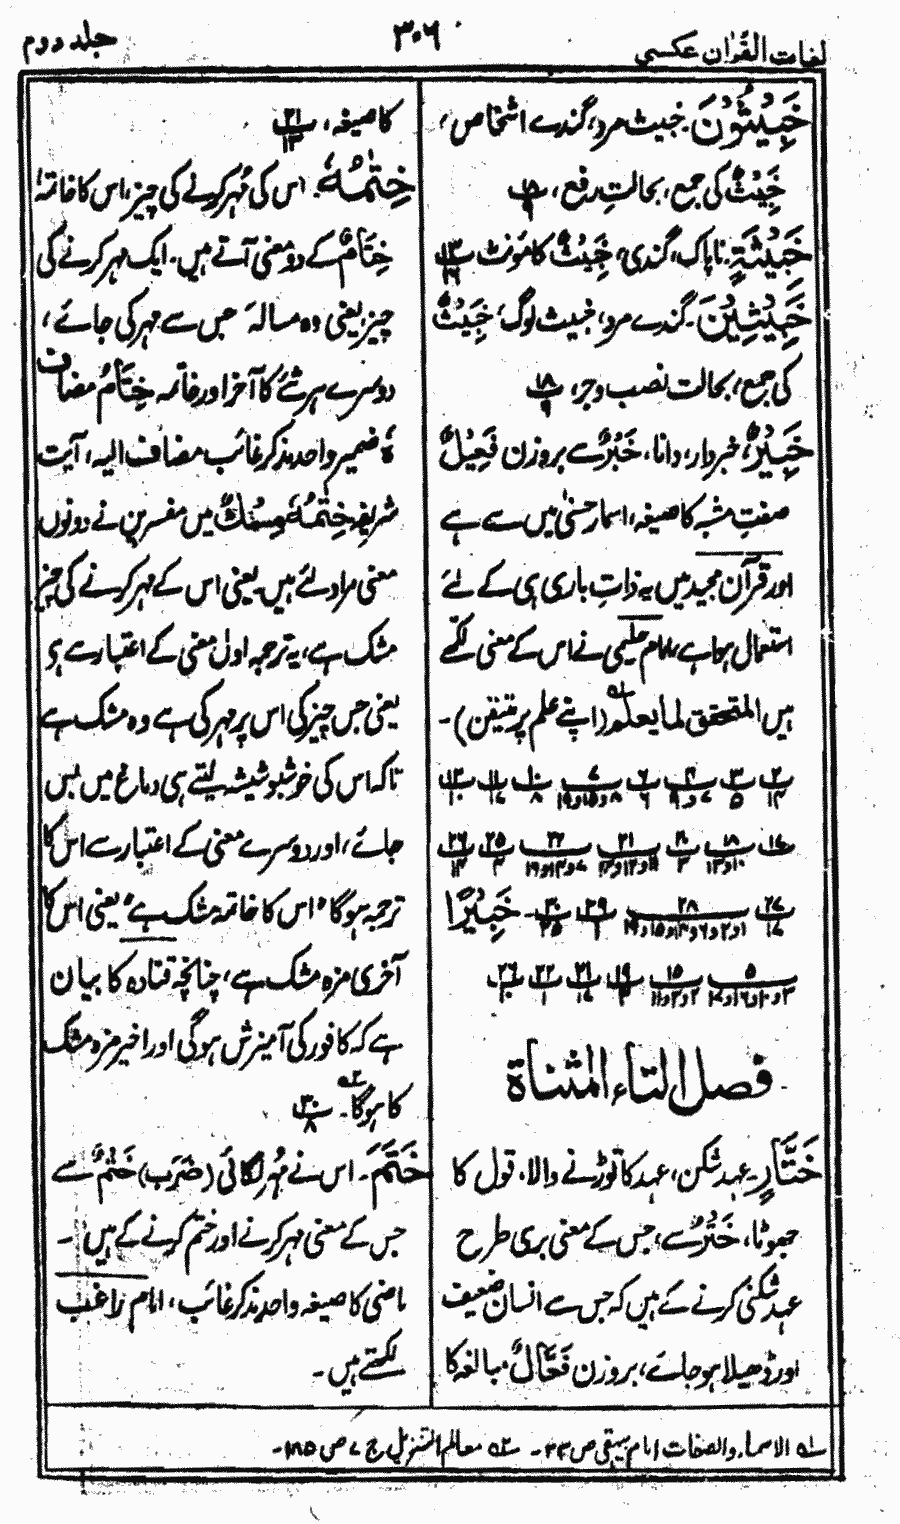 لغات القرآن عکسی
۳۰۶
جلد دوم
خَبِیْثُوْنَ۔ خبیث مرد، گندے اشخاص،
خَبِیْثٌ کی جمع، بحالتِ رفع،
خَبِیْثَۃٍ۔ ناپاک، گندی، خَبِیْثٌ کا مؤنث
خَبِیْثِیْنَ۔ گندے مرد، خبیث لوگ، خَبِیْثٌ
کی جمع، بحالت نصب وجر،
خَبِیْرٌ، خبردار، دانا، خَبُرٌ سے بروزن فَعِیْلٌ
صفتِ مشبہ کا صیغہ، اسمارحسنیٰ میں سے ہے
اور قرآن مجید میں یہ ذاتِ باری ہی کے لئے
استعمال ہوا ہے، امام حلیمی نے اس کے معنی لکھے
ہیں المتحقق لما یعلم (اپنے علم پر متیقن)۔
خَبِیْرًا
فصل التاء المثناۃ
خَتَّارٍ۔ عہد شکن، عہد کا توڑنے والا، قول کا
جھوٹا، خَتْرٌ سے، جس کے معنی بری طرح
عہد شکنی کرنے کے ہیں کہ جس سے انسان ضعیف
اور ڈھیلا ہو جائے، بروزن فَعَّالٌ مبالغہ کا
کا صیغہ،
خِتٰمُہٗ۔ اس کی مُہر کرنے کی چیز، اس کا خاتمہ،
خِتَامٌ کے دو معنی آتے ہیں۔ ایک مہر کرنے کی
چیز، یعنی وہ مسالہ جس سے مہر کی جائے،
دوسرے ہر شئے کا آخر اور خاتمہ خِتَامُ مضاف
ہٗ ضمیر واحد مذکر غائب مضاف الیہ، آیت
شریفہ خِتٰمُہٗ مِسْکٌ میں مفسرین نے دونوں
معنی مراد لئے ہیں۔ یعنی اس کے مہر کرنے کی چیز
مشک ہے، یہ ترجمہ اول معنی کے اعتبار سے ہے
یعنی جس چیز کی اس پر مہر کی ہے وہ مشک ہے
تاکہ اس کی خوشبو شیشہ لیتے ہی دماغ میں بس
جائے، اور دوسرے معنی کے اعتبار سے اس کا
ترجمہ ہوگا "اس کا خاتمہ مشک ہے" یعنی اس کا
آخری مزہ مشک ہے، چنانچہ قتادہ کا بیان
ہے کہ کافور کی آمیزش ہوگی اور اخیر مزہ مشک
کا ہوگا۔
خَتَمَ۔ اس نے مُہر لگائی (ضَرَبَ) خَتْمٌ سے
جس کے معنی مہر کرنے اور ختم کرنے کے ہیں۔
ماضی کا صیغہ واحد مذکر غائب، امام راغب
لکھتے ہیں۔
لہ الاسماء والصفات امام بیہقی ص ۳۳۔ ۲ہ معالم التنزیل ج ۷ ص ۱۸۵۔